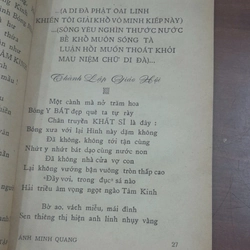 ...(A DI ĐÀ PHẬT OAI LINH
KHIẾN TÔI GIẢI KHỔ VÔ MINH KIẾP NÀY)
...(SÔNG YÊU NGHÌN THƯỚC NƯỚC
BỂ KHỔ MUÔN SÓNG TÀ
LUÂN HỒI MUỐN THOÁT KHỎI
MAU NIỆM CHỮ DI ĐÀ)...
Thành Lập Giáo Hội
Một cánh mã nở trăm hoa
Bóng Y BÁT đẹp quê ta tự rày
Chân truyền KHẤT SĨ là đây :
Bóng xưa với lại Hình này dám không
Đã không dám động dám không
Nhứt y nhứt bát dạo cùng nước non
Đã không nhà cửa vợ con
Lại không vương bận vuông tròn thấp cao
«Đây vơi, trong đục» sá nào
Hải triều âm vọng ngọt ngào Tâm Kinh
Bờ ao, vách miếu, mái đình
Sen thiêng thị hiện anh linh nhụy vàng
ÁNH MINH QUANG
27